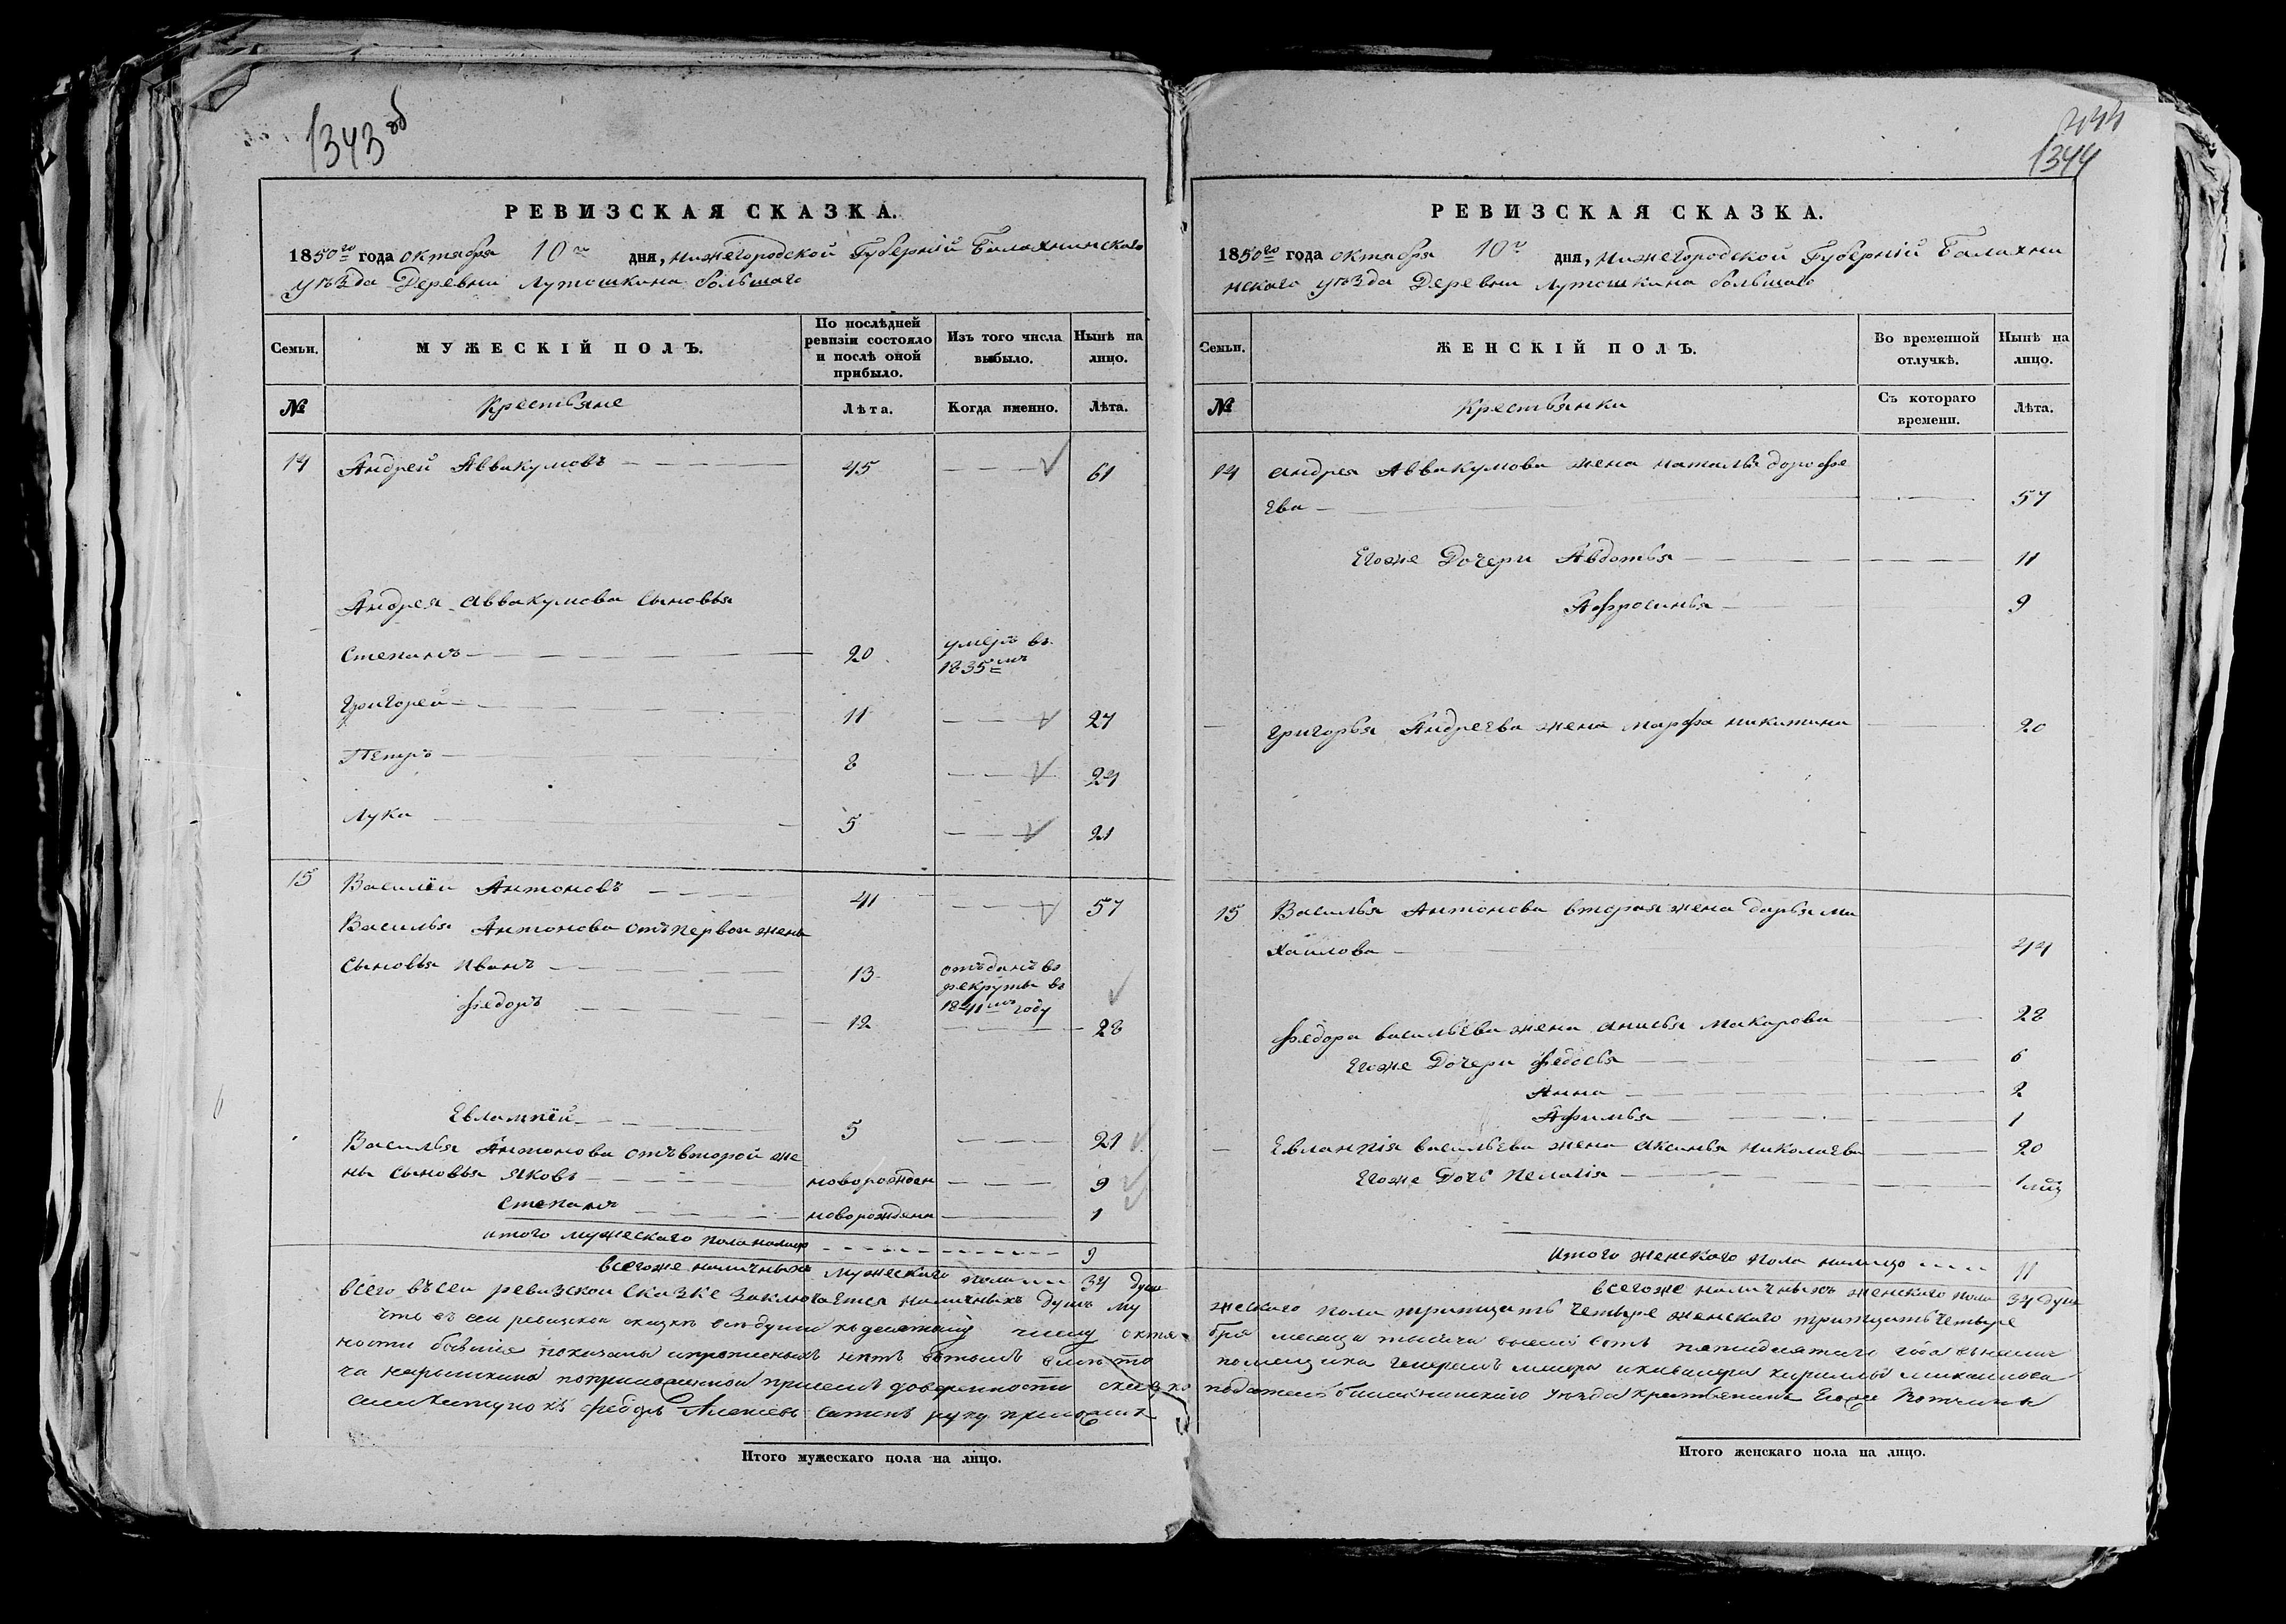 1343 об
РЕВИЗСКАЯ СКАЗКА.
1850го года октября 10го дня, нижегородской Губерніи Балахнинского
уѣзда Деревни Лутошкина большаго
Семьи. МУЖЕСКІЙ ПОЛЪ. По послѣдней ревизіи состояло и послѣ оной прибыло. Изъ того числа выбыло. Нынѣ на лицо.
№ Крестьяне Лѣта. Когда именно. Лѣта.
14 Андрей Аввакумовъ 45 61
Андрея Аввакумова сыновья
Степанъ 20 умеръ въ 1835мъ
Григорей 11 27
Петръ 8 24
Лука 5 21
15 Василей Антоновъ 41 57
Василья Антонова отъ первой жены
сыновья Иванъ 13 отъданъ въ рекруты въ 1841мъ году
федоръ 12 28
Евлампей 5 21
Василья Антонова отъ второй же
ны сыновья Яковъ новорожден 9
Степанъ новорожденъ 1
итого мужескаго пола налицо 9
всегоже наличныхъ мужескаго пола 34 души
всего въ сеи ревизской сказке заключается наличныхъ душъ му
что въ сеи ревизской сказкѣ всѣ души къ десятому числу октя
ности бывшіе показаны и прописныхъ нѣтъ въ томъ
ча нарышкина по приложенной при семъ доверенности
федоръ Алексеевъ руку приложилъ
Итого мужескаго пола на лицо.
444
1344
РЕВИЗСКАЯ СКАЗКА.
1850го года октября 10го дня, Нижегородской Губерніи Балахни
нскаго уѣзда Деревни Лутошкина большаго
Семьи. ЖЕНСКІЙ ПОЛЪ. Во временной отлучкѣ. Нынѣ на лицо.
№ Крестьянки Съ котораго времени. Лѣта.
14 андрея Аввакумова жена наталья дорофе
ева 57
Егоже Дочери Авдотья 11
Афросинья 9
Григорья Андреева жена марфа никитина 20
15 Василья Антонова вторая жена дарья ми
хаилова 44
федора васильева жена анисья макарова 28
Егоже Дочери федосья 6
Анна 2
Афимья 1
Евлампія васильева жена аксинья николаева 20
Егоже Дочь Пелагія 1
Итого женскаго пола налицо 11
всегоже наличныхъ женскаго пола 34 души
жескаго пола тритцать четыре женскаго тритцать четыре
бря месяца тысяча восемь сотъ пятидесятаго года
помещика генералъ маіора и кавалера кирилы михаилова
податель балахнинскаго уѣзда крестьянинъ Егоже вотчины
Итого женскаго пола на лицо.